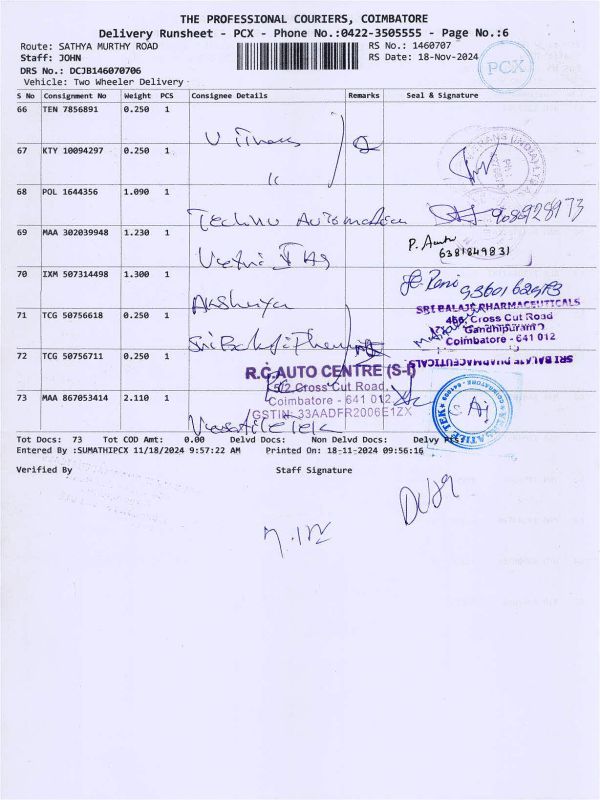 THE PROFESSIONAL COURIERS, COIMBATORE
Delivery Runsheet - PCX - Phone No.:0422-3505555 - Page No.:6
Route: SATHYA MURTHY ROAD
Staff: JOHN
DRS No.: DCJB146070706
Vehicle: Two Wheeler Delivery
RS No.: 1460707
RS Date: 18-Nov-2024
PCX
S No Consignment No Weight PCS Consignee Details Remarks Seal & Signature
66 TEN 7856891 0.250 1
67 KTY 10094297 0.250 1
68 POL 1644356 1.090 1
Techno Automation 908928973
69 MAA 302039948 1.230 1
6381849831
70 IXM 507314498 1.300 1
Akshaya
71 TCG 50756618 0.250 1
Sri Balaji Pharma
SRI BALAJI PHARMACEUTICALS
Cross Cut Road
Gandhipuram
Coimbatore - 641 012
72 TCG 50756711 0.250 1
SRI BALAJI PHARMACEUTICALS
R.C.AUTO CENTRE (S-I)
Cross Cut Road,
Coimbatore - 641 012
GSTIN: 33AADFR2006E1ZX
73 MAA 867053414 2.110 1
Versatile Tek
VERSATILE TEK
COIMBATORE
Tot Docs: 73 Tot COD Amt: 0.00 Delvd Docs: Non Delvd Docs: Delvy
Entered By :SUMATHIPCX 11/18/2024 9:57:22 AM Printed On: 18-11-2024 09:56:16
Verified By Staff Signature